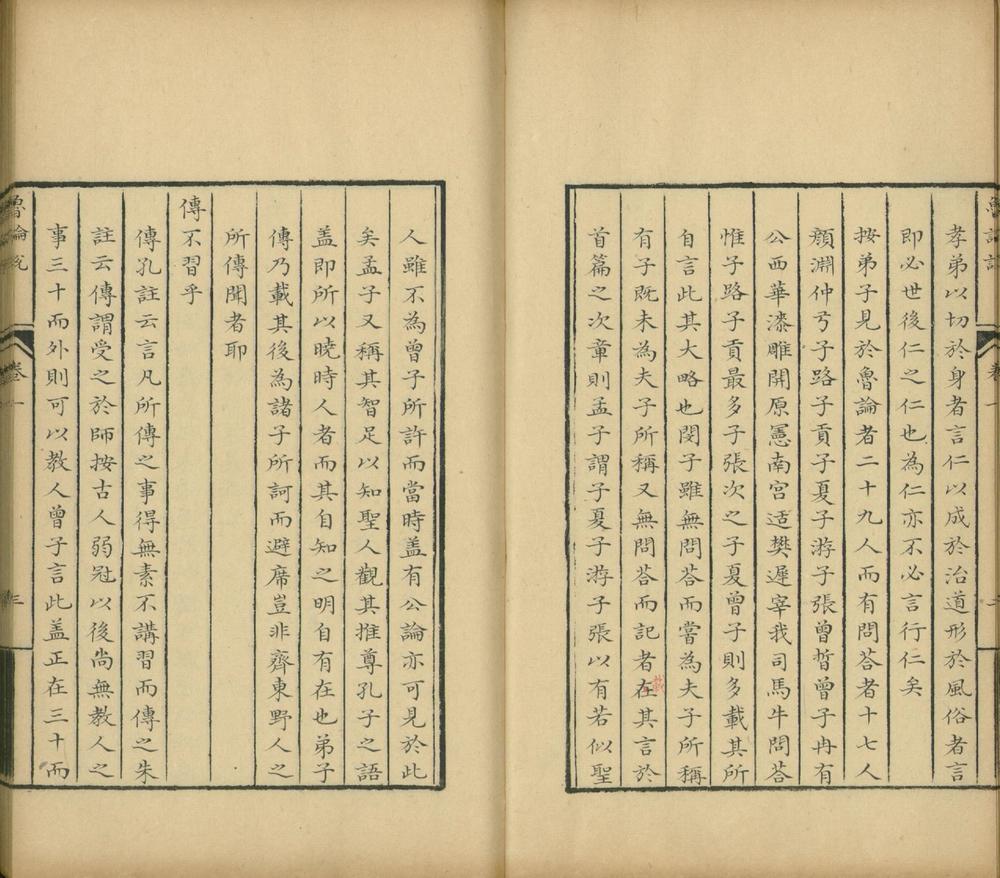 孝弟以切於身者言仁以成於治道形於風俗者言
即必世後仁之仁也為仁亦不必言行仁矣
按弟子見於魯論者二十九人而有問荅者十七人
顏淵仲弓子路子貢子夏子游子張曾晳曾子冉有
公西華漆雕開原憲南宫适樊遲宰我司馬牛問荅
惟子路子貢最多子張次之子夏曾子則多載其所
自言此其大略也閔子雖無問荅而嘗為夫子所稱
有子既未為夫子所稱又無問荅而記者在其言於
載
首篇之次章則孟子謂子夏子游子張以有若似聖
人雖不為曾子所許而當時盖有公論亦可見於此
矣孟子又稱其智足以知聖人觀其推尊孔子之語
盖即所以曉時人者而其自知之明自有在也弟子
傳乃載其後為諸子所訶而避席豈非齊東野人之
所傳聞者耶
傳不習乎
傳孔註云言凡所傳之事得無素不講習而傳之朱
註云傳謂受之於師按古人弱冠以後尚無教人之
事三十而外則可以教人曾子言此盖正在三十而
魯論說
卷一
三